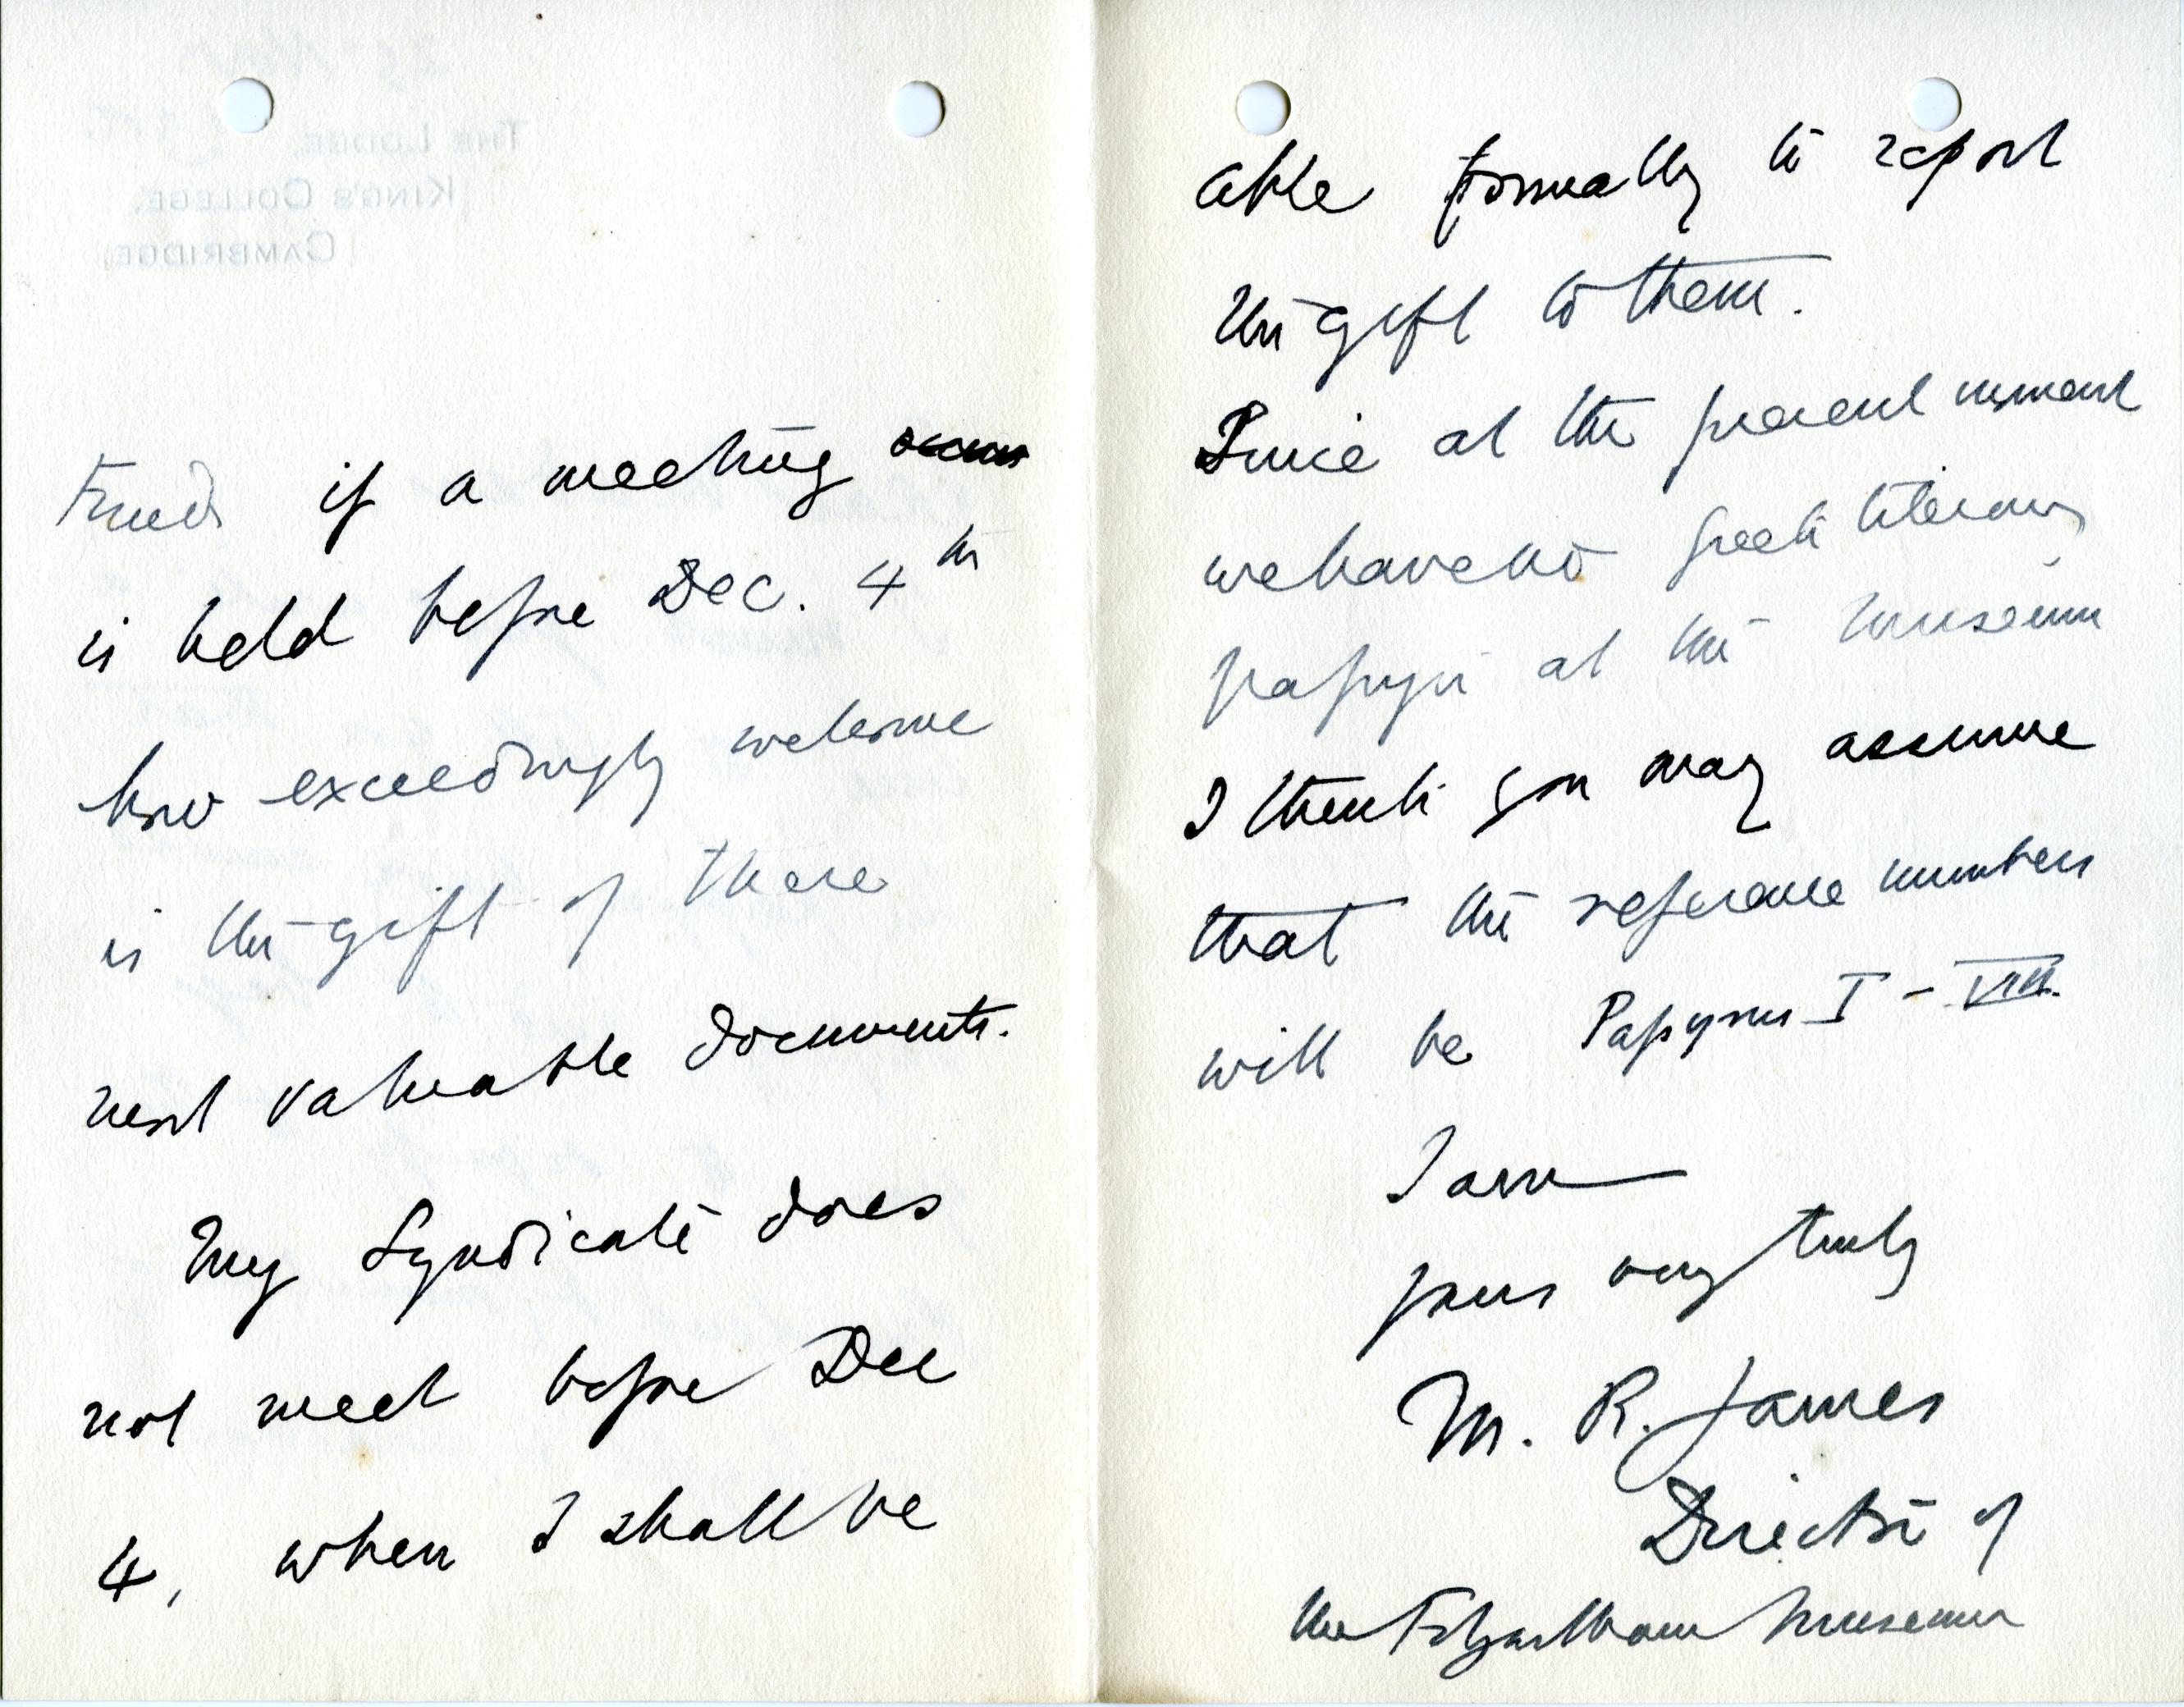 Fund if a meeting occurs
is held before Dec. 4th
how exceedingly welcome
is the gift of these
most valuable documents.
My Syndicate does
not meet before Dec
4, when I shall be
able formally to report
the gift to them.
Since at the present moment
we have no Greek literary
papyri at the Museum
I think you may assume
that the reference numbers
will be Papyrus I - VIII.
I am
yours very truly
M. R. James
Director of
the Fitzwilliam Museum
THE LODGE,
KING'S COLLEGE,
CAMBRIDGE.